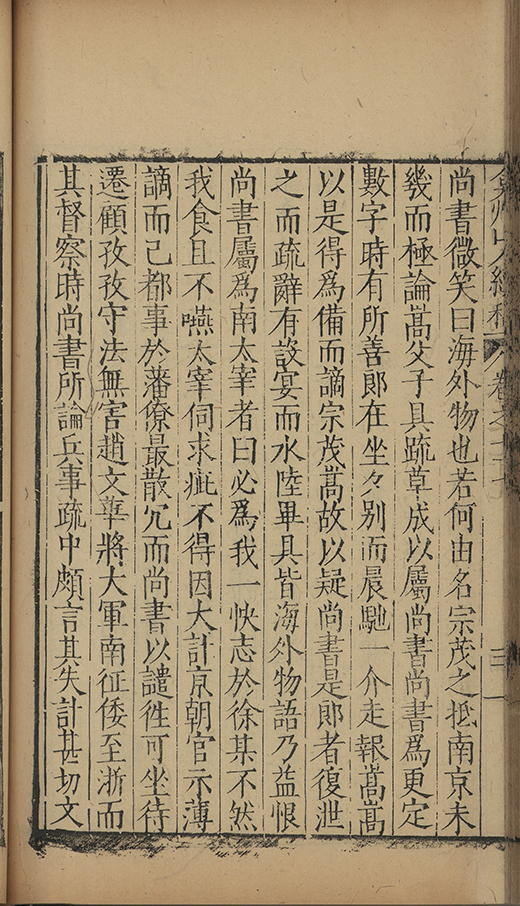 弇州山人續稿 卷之 三
尚書微笑曰海外物也若何由名宗茂之抵南京未
幾而極論嵩父子具疏草成以屬尚書尚書為更定
數字時有所善郎在坐夕別而晨馳一介走報嵩嵩
以是得為備而謫宗茂嵩故以疑尚書是郎者復泄
之而疏辭有設宴而水陸畢具皆海外物語乃益恨
尚書屬為南太宰者曰必為我一快志於徐某不然
我食且不嚥太宰伺求疵不得因大計京朝官示薄
謫而已都事於藩僚最散冗而尚書以譴徃可坐待
遷顧孜孜守法無害趙文華將大軍南征倭至浙而
其督察時尚書所論兵事疏中頗言其失計甚切文